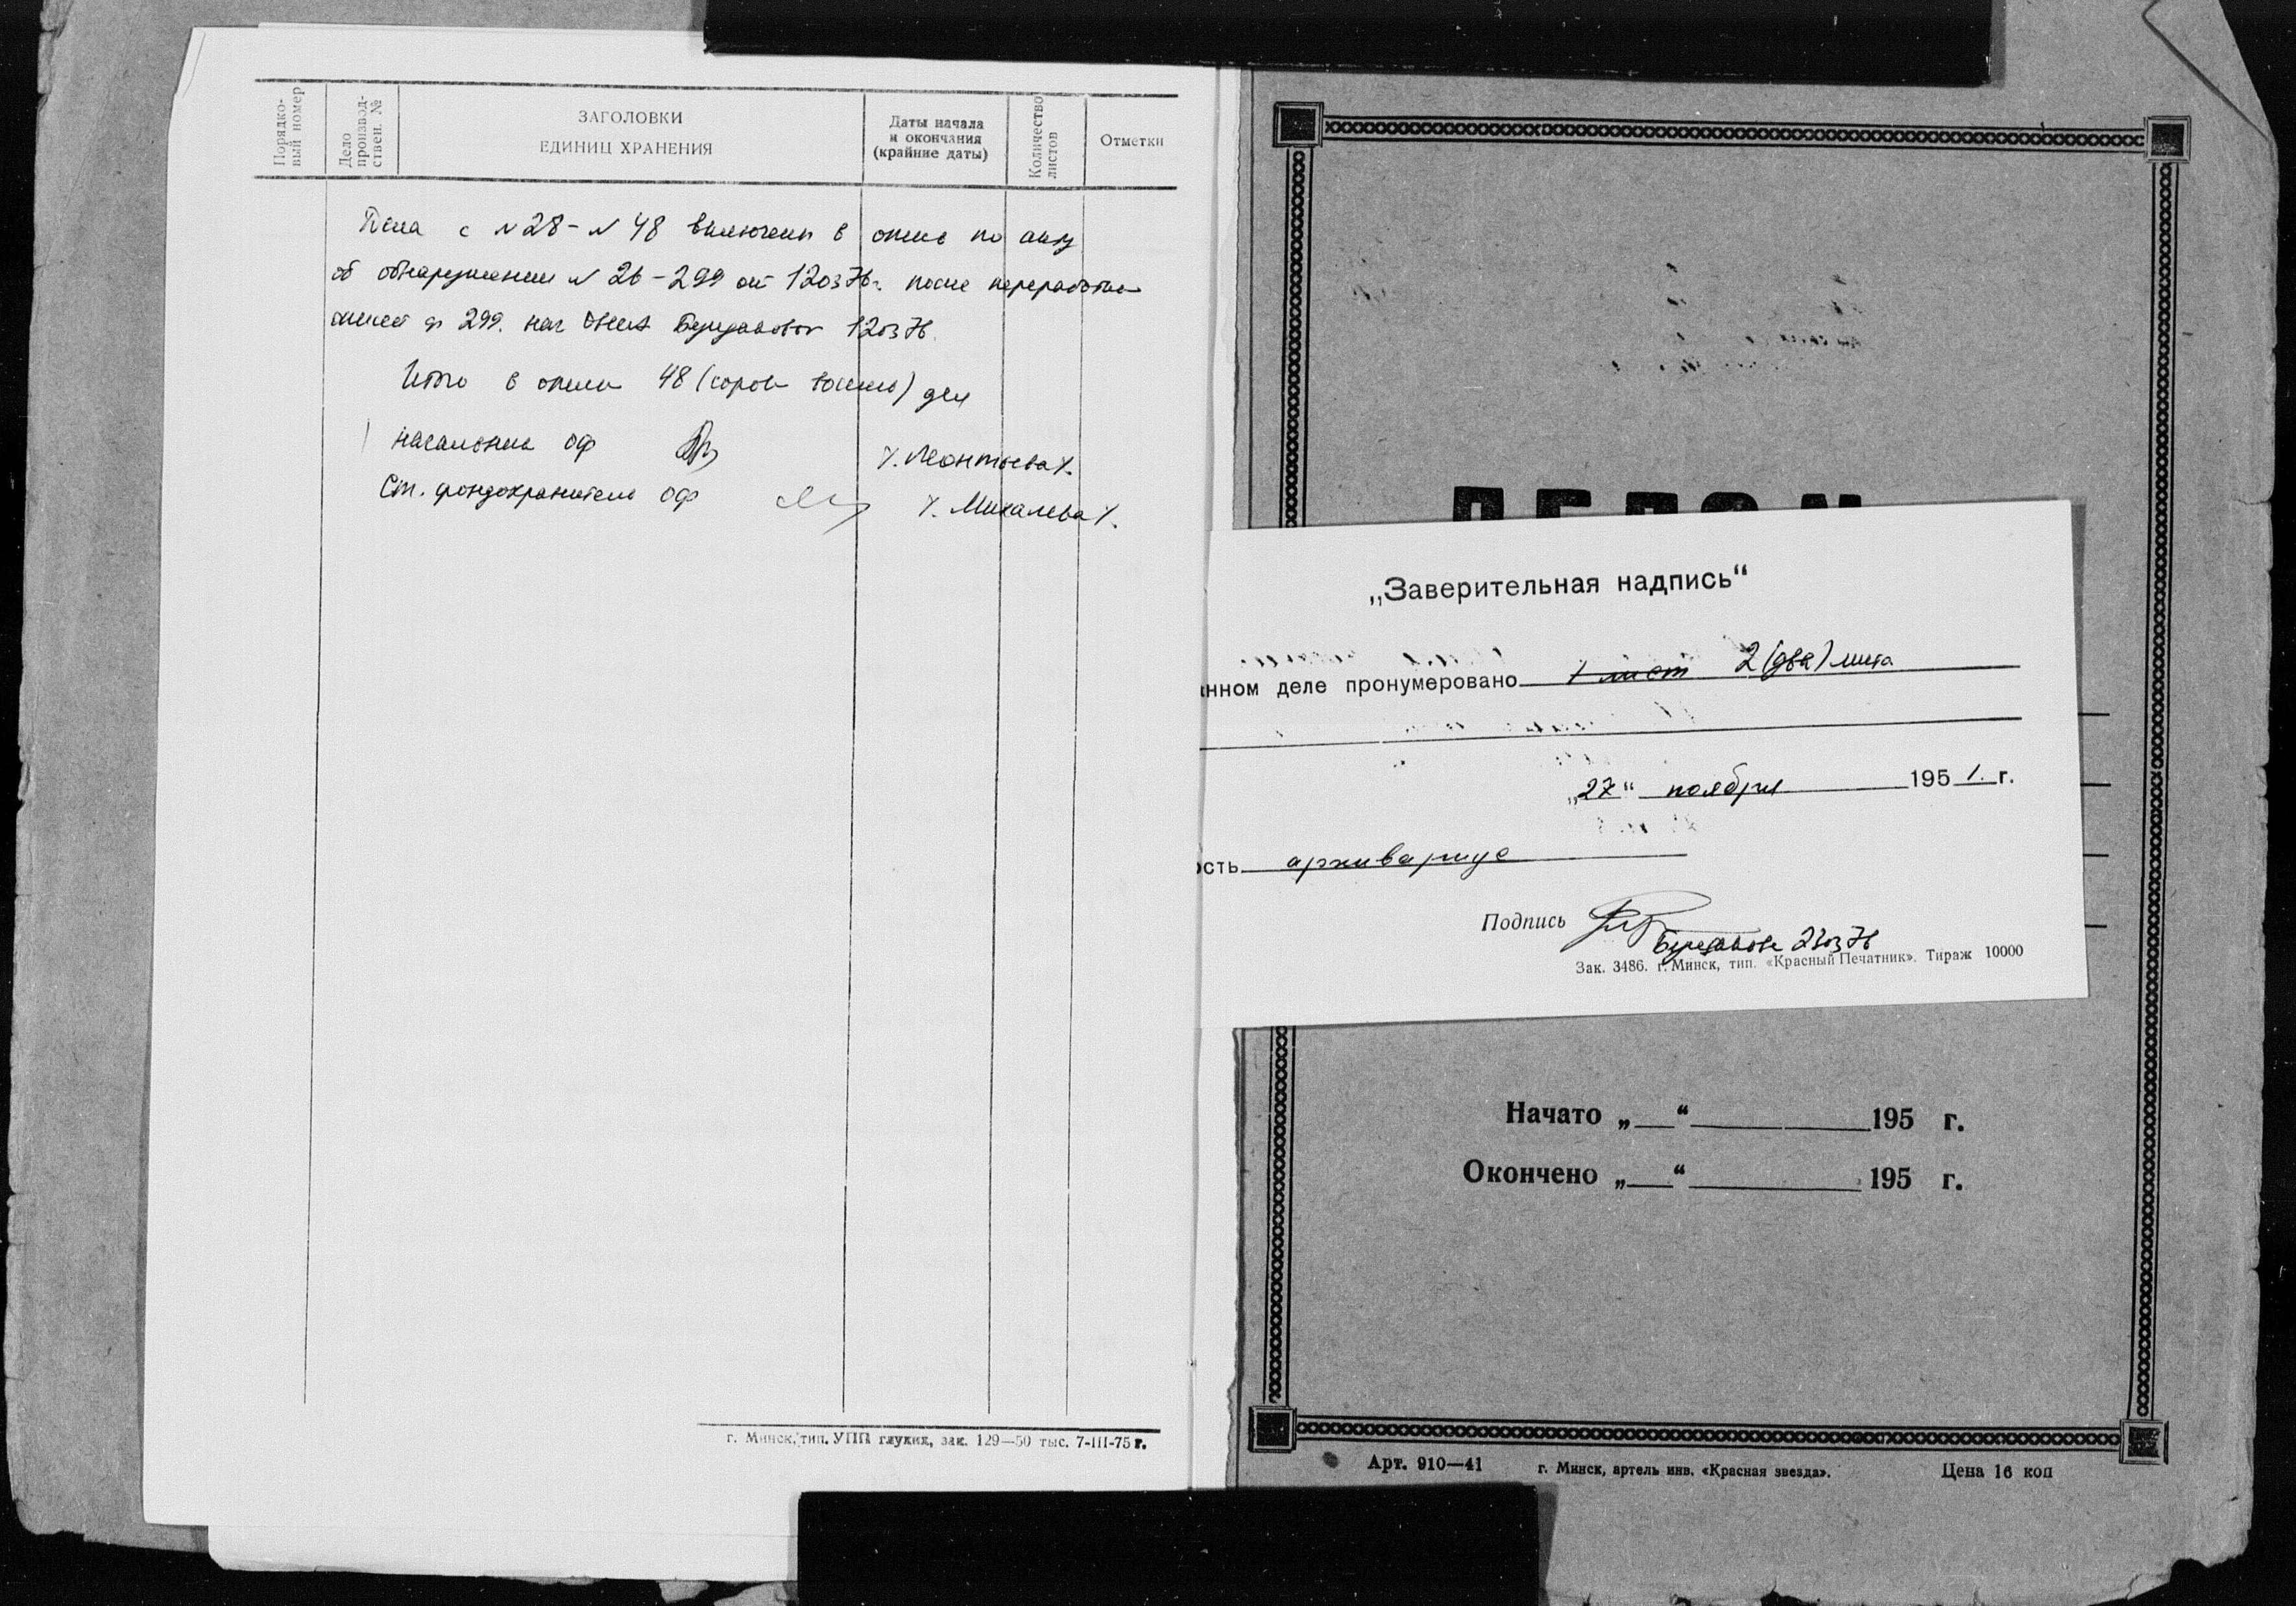 Порядко-
вый номер
Дело
производ-
ствен. №
ЗАГОЛОВКИ
ЕДИНИЦ ХРАНЕНИЯ
Даты начала
и окончания
(крайние даты)
Количество
листов
Отметки
Дела с №28-№48 включены в опись по акту
об обнаружении № 26-299 от 120376г. после переработки
описей ф 299. нач 120376.
Итого в описи 48 (сорок восемь) дел
Начальник ОФ /. Леонтьева /.
Ст. фондохранитель ОФ /. Михалева /.
г. Минск, тип. УПП глухих, зак. 129—50 тыс. 7-III-75 г.
„Заверительная надпись“
нном деле пронумеровано 1 лист 2 (два) листа
„27“ ноября 1951. г.
ость архивариус
Подпись
230376
Зак. 3486. г. Минск, тип. «Красный Печатник». Тираж 10000
Начато „ “ 195 г.
Окончено „ “ 195 г.
Арт. 910—41 г. Минск, артель инв. «Красная звезда». Цена 16 коп